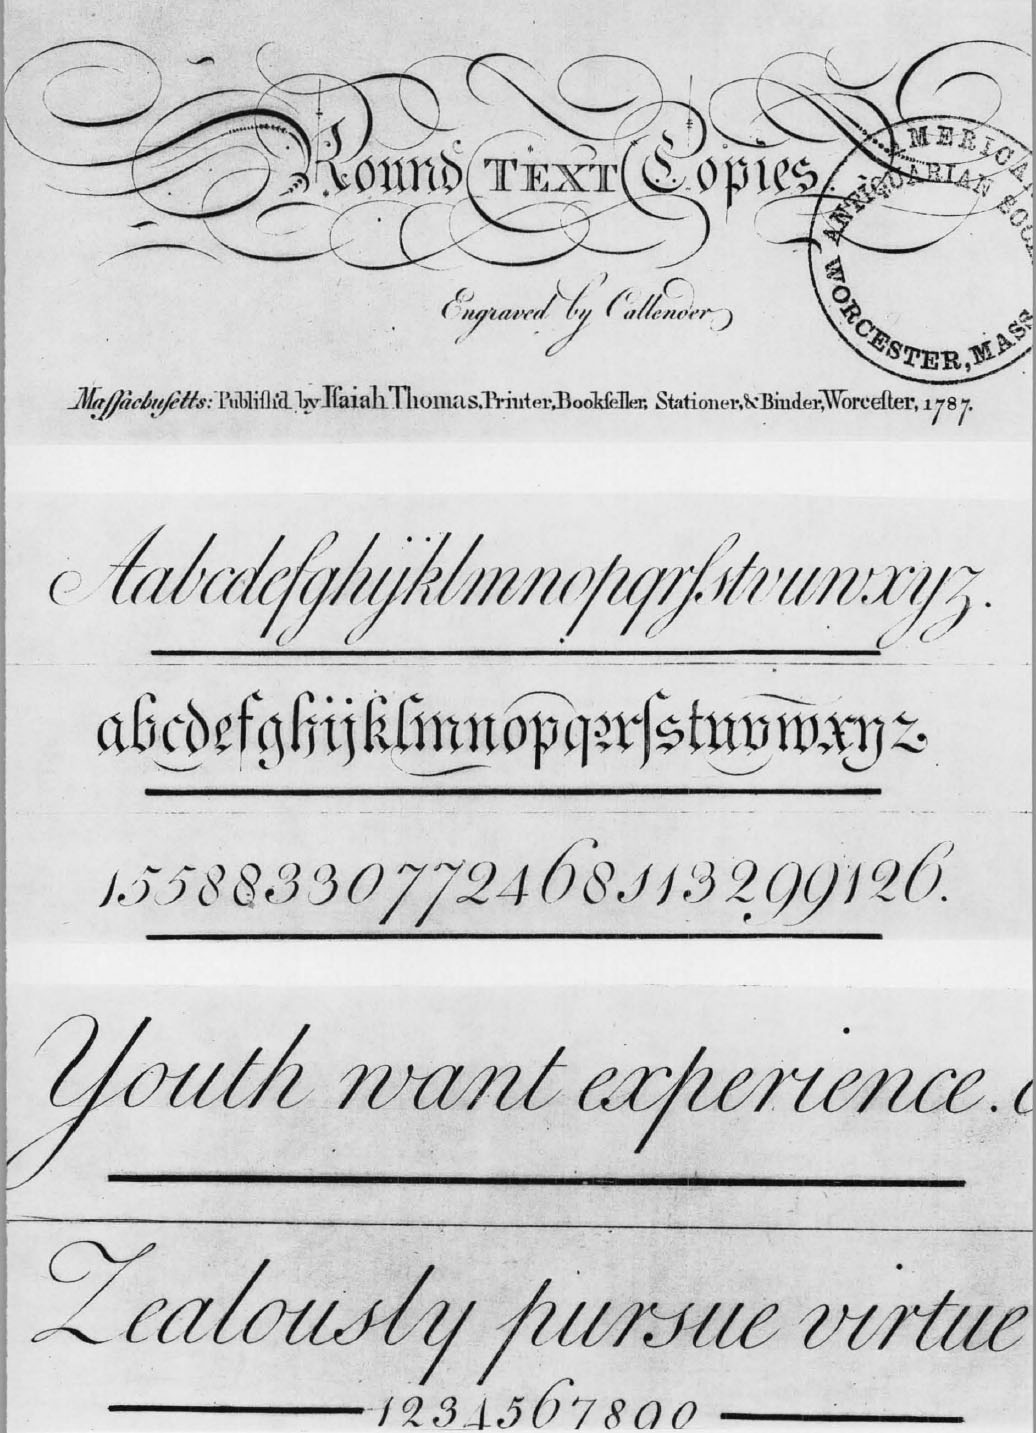 Round TEXT Copies.
AMERICA
ANTIQUARIAN SOC
WORCESTER, MASS
Engraved by Callender
Maſſachuſetts: Publiſh'd by Iſaiah Thomas, Printer, Bookſeller, Stationer, & Binder, Worceſter, 1787.
Aabcdefghijklmnopqrſstvuwxyz.
abcdefghijklmnopqꝛrſstuvwxyz.
15588330772468113299126.
Youth want experience.
Zealously pursue virtue
1234567890